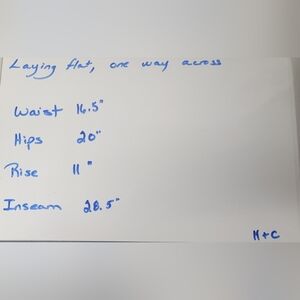 Laying flat, one way across
Waist 16.5"
Hips 20"
Rise 11"
Inseam 28.5"
M+C